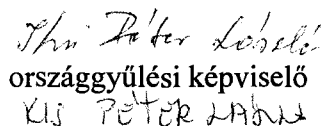 Péter László
országgyűlési képviselő
KIS PÉTER LÁSZLÓ